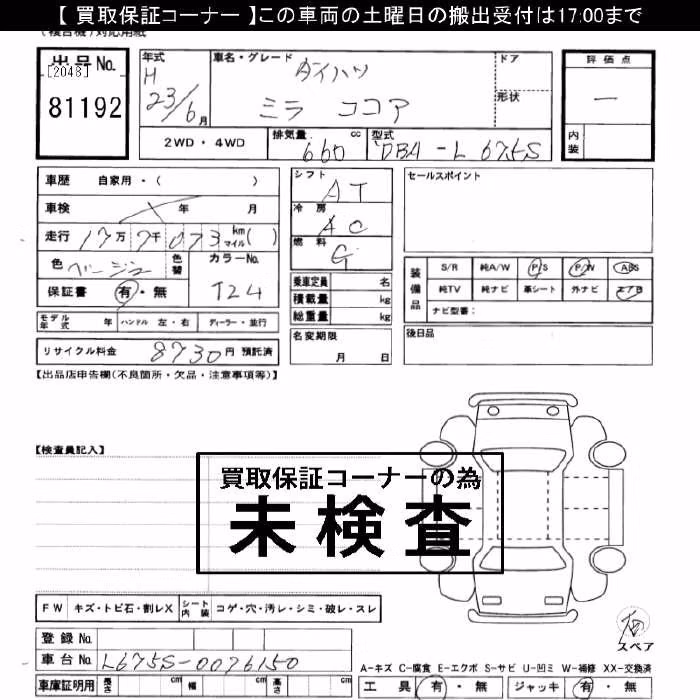 【 買取保証コーナー 】この車両の土曜日の搬出受付は17:00まで
(複合機)対応用紙
出品No.
[2048]
81192
年式
H
23/6月
車名・グレード
ダイハツ
ミラ ココア
ドア
形状
評価点
—
内装
2WD・4WD
排気量 660 cc
型式 DBA-L675S
車歴 自家用・( )
車検 年 月
走行 17万7千073 km マイル( )
色 ベージュ 色替 カラーNo. T24
保証書 有・無
モデル年式 年 ハンドル 左・右 ディーラー・並行
リサイクル料金 8730円 預託済
シフト AT
冷房 AC
燃料 G
乗車定員 名
積載量 kg
総重量 kg
名変期限
月 日
セールスポイント
装備品
S/R 純A/W P/S P/W ABS
純TV 純ナビ 革シート 外ナビ エアB
ナビ型番:
後日品
【出品店申告欄(不良箇所・欠品・注意事項等)】
【検査員記入】
買取保証コーナーの為
未検査
FW キズ・トビ石・割レX シート内装 コゲ・穴・汚レ・シミ・破レ・スレ
登録No.
車台No. L675S-0076150
車庫証明用 長さ cm 幅 cm 高さ cm
スペア
A-キズ C-腐食 E-エクボ S-サビ U-凹ミ W-補修 XX-交換済
工具 有・無 ジャッキ 有・無